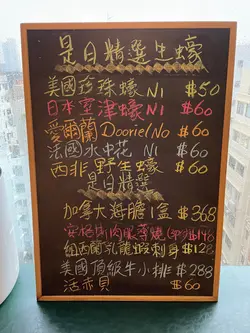 是日精選生蠔
美國珍珠蠔 N1 $50
日本室津蠔 N1 $60
愛爾蘭 Dooriel No $60
法國水中花 N1 $60
西非野生蠔 $60
是日精選
加拿大海膽1盒 $368
$148
紐西蘭乳龍蝦刺身 $128
美國頂級牛小排 $288
活赤貝 $60